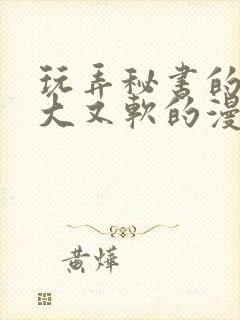 玩弄秘书的
大又软的漫
黄烨